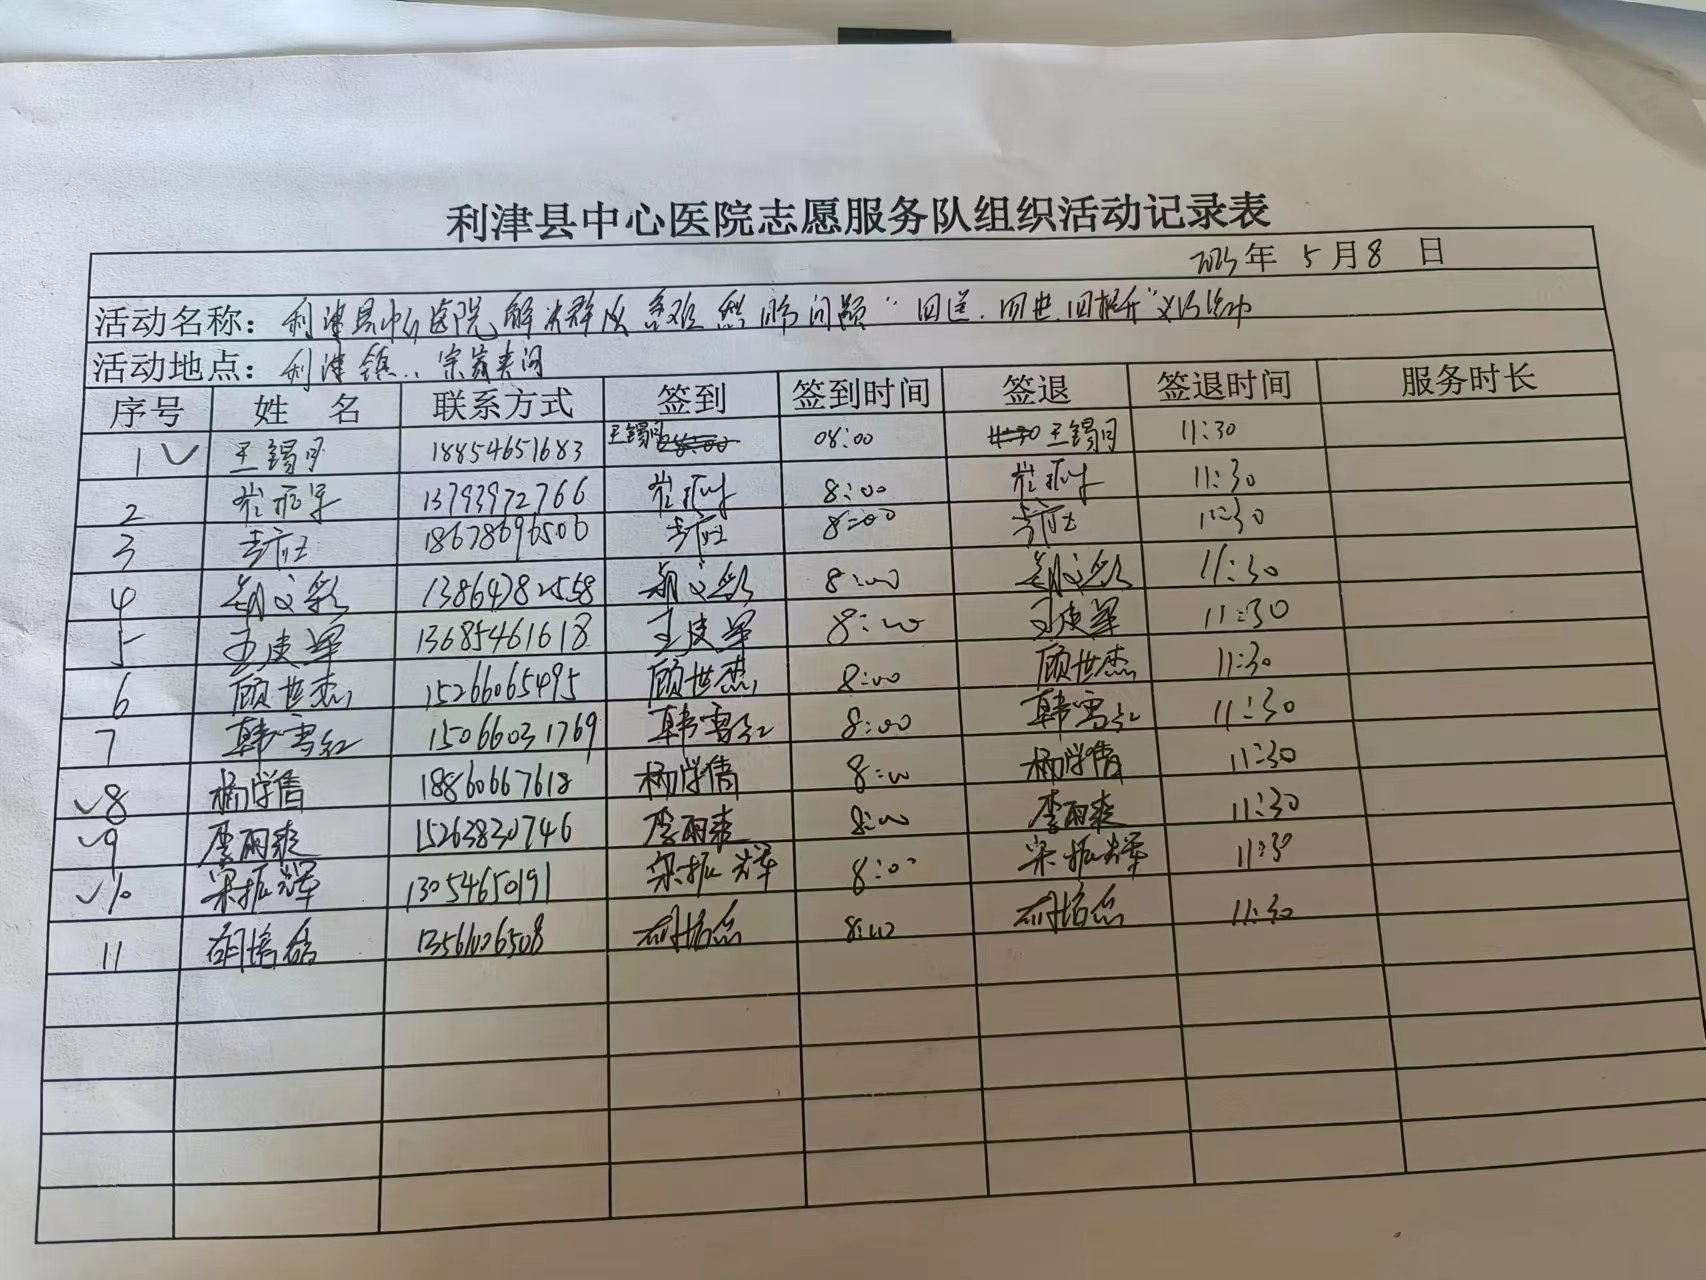 利津县中心医院志愿服务队组织活动记录表
2025年 5月8 日
活动名称：利津县中心医院解决群众急难愁盼问题"四送、四进、四提升"义诊活动
活动地点：利津镇
序号 姓 名 联系方式 签到 签到时间 签退 签退时间 服务时长
1 王锡月 18854651683 王锡月 08:00 王锡月 11:30
2 13793972766 8:00 11:30
3 18678696506 8:00 11:30
4 13864782558 8:00 11:30
5 13685461618 8:00 11:30
6 顾世杰 15266065495 顾世杰 8:00 顾世杰 11:30
7 韩雪红 15066031769 韩雪红 8:00 韩雪红 11:30
8 杨学倩 18860667618 杨学倩 8:00 杨学倩 11:30
9 李丽爽 15263830746 李丽爽 8:00 李丽爽 11:30
10 宋振辉 13054650191 宋振辉 8:00 宋振辉 11:30
11 13561026508 8:00 11:30